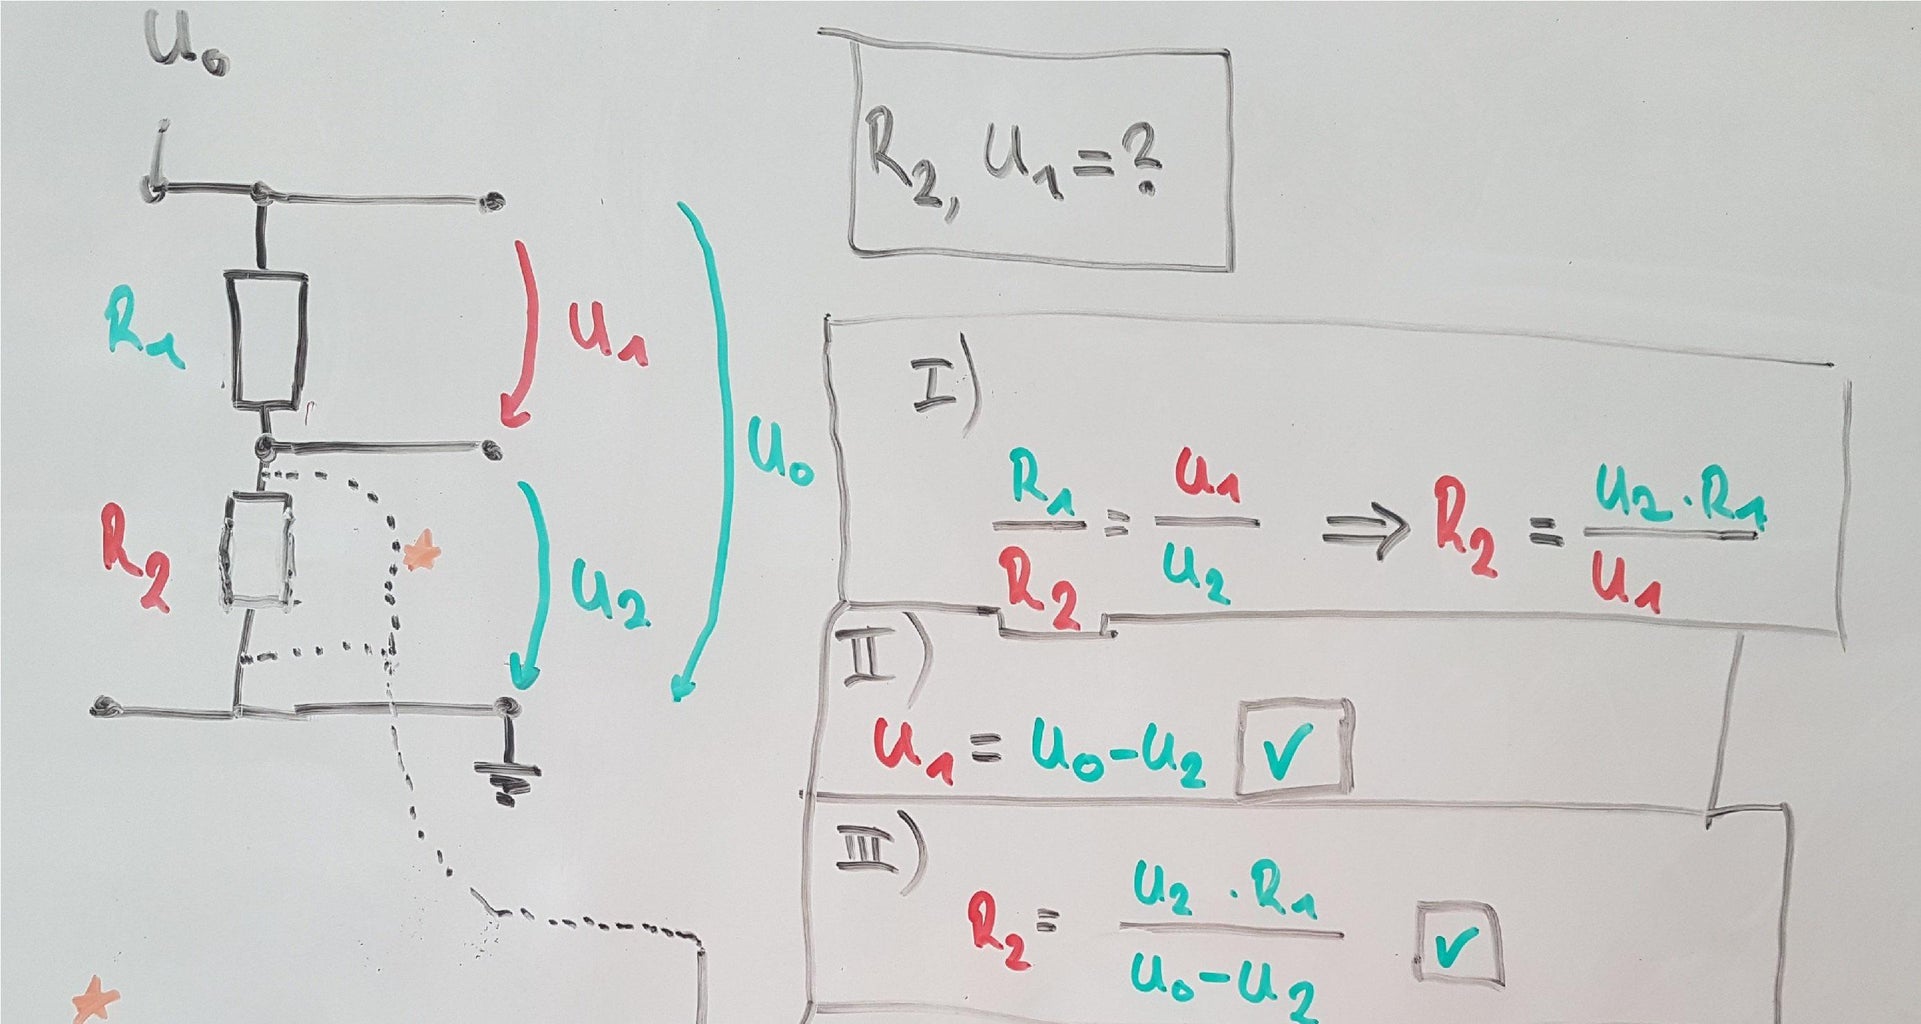 U₀
R₂, U₁ = ?
R₁
U₁
U₀
R₂
U₂
I)
R₁/R₂ = U₁/U₂ ⇒ R₂ = U₂·R₁/U₁
II)
U₁ = U₀-U₂ ✓
III)
R₂ = U₂·R₁/U₀-U₂ ✓